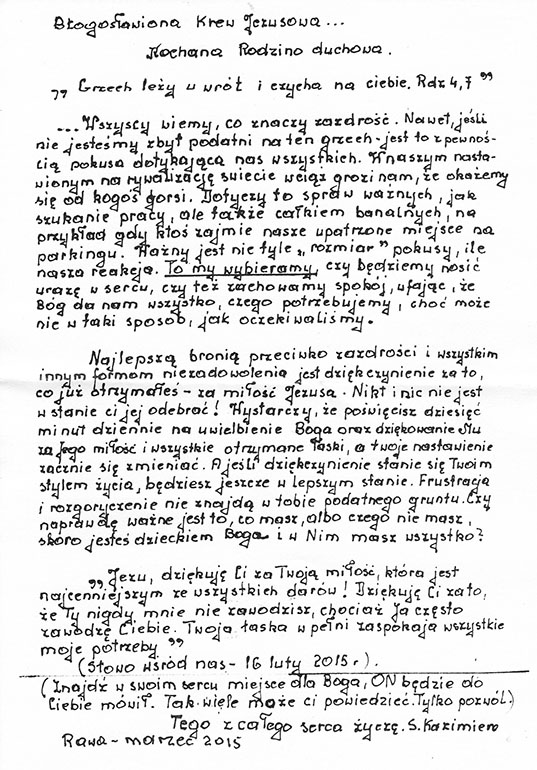 Błogosławiona Krew Jezusowa...
Kochana Rodzino duchowa.
„Grzech leży u wrót i czyha na ciebie. Rdz 4,7"
... Wszyscy wiemy, co znaczy zazdrość. Nawet, jeśli
nie jesteśmy zbyt podatni na ten grzech - jest to z pewnoś-
cią pokusa dotykająca nas wszystkich. W naszym nasta-
wionym na rywalizację świecie wciąż grozi nam, że okażemy
się od kogoś gorsi. Dotyczy to spraw ważnych, jak
szukanie pracy, ale także całkiem banalnych, na
przykład gdy ktoś zajmie nasze upatrzone miejsce na
parkingu. Ważny jest nie tyle „rozmiar" pokusy, ile
nasza reakcja. To my wybieramy, czy będziemy nosić
urazę w sercu, czy też zachowamy spokój, ufając, że
Bóg da nam wszystko, czego potrzebujemy, choć może
nie w taki sposób, jak oczekiwaliśmy.
Najlepszą bronią przeciwko zazdrości i wszystkim
innym formom niezadowolenia jest dziękczynienie za to,
co już otrzymałeś - za miłość Jezusa. Nikt i nic nie jest
w stanie ci jej odebrać! Wystarczy, że poświęcisz dziesięć
minut dziennie na uwielbienie Boga oraz dziękowanie Mu
za Jego miłość i wszystkie otrzymane łaski, a twoje nastawienie
zacznie się zmieniać. A jeśli dziękczynienie stanie się Twoim
stylem życia, będziesz jeszcze w lepszym stanie. Frustracja
i rozgoryczenie nie znajdą w tobie podatnego gruntu. Czy
naprawdę ważne jest to, co masz, albo czego nie masz,
skoro jesteś dzieckiem Boga i w Nim masz wszystko?
„Jezu, dziękuję Ci za Twoją miłość, która jest
najcenniejszym ze wszystkich darów! Dziękuję Ci za to,
że Ty nigdy mnie nie zawodzisz, chociaż ja często
zawodzę Ciebie. Twoja łaska w pełni zaspokaja wszystkie
moje potrzeby"
(Słowo wśród nas - 16 luty 2015 r).
(Znajdź w swoim sercu miejsce dla Boga, ON będzie do
Ciebie mówił. Tak wiele może ci powiedzieć. Tylko pozwól.)
Tego z całego serca życzę. S. Kazimiera
Rawa - marzec 2015